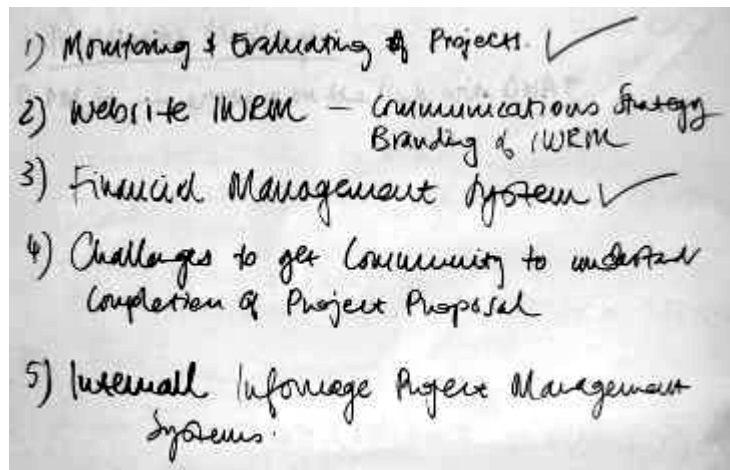 1) Monitoring & Evaluating of Projects. ✓
2) Website IWRM – Communications Strategy
Branding of IWRM
3) Financial Management System ✓
4) Challenges to get Community to understand
Completion of Project Proposal
5) Project Management
Systems.